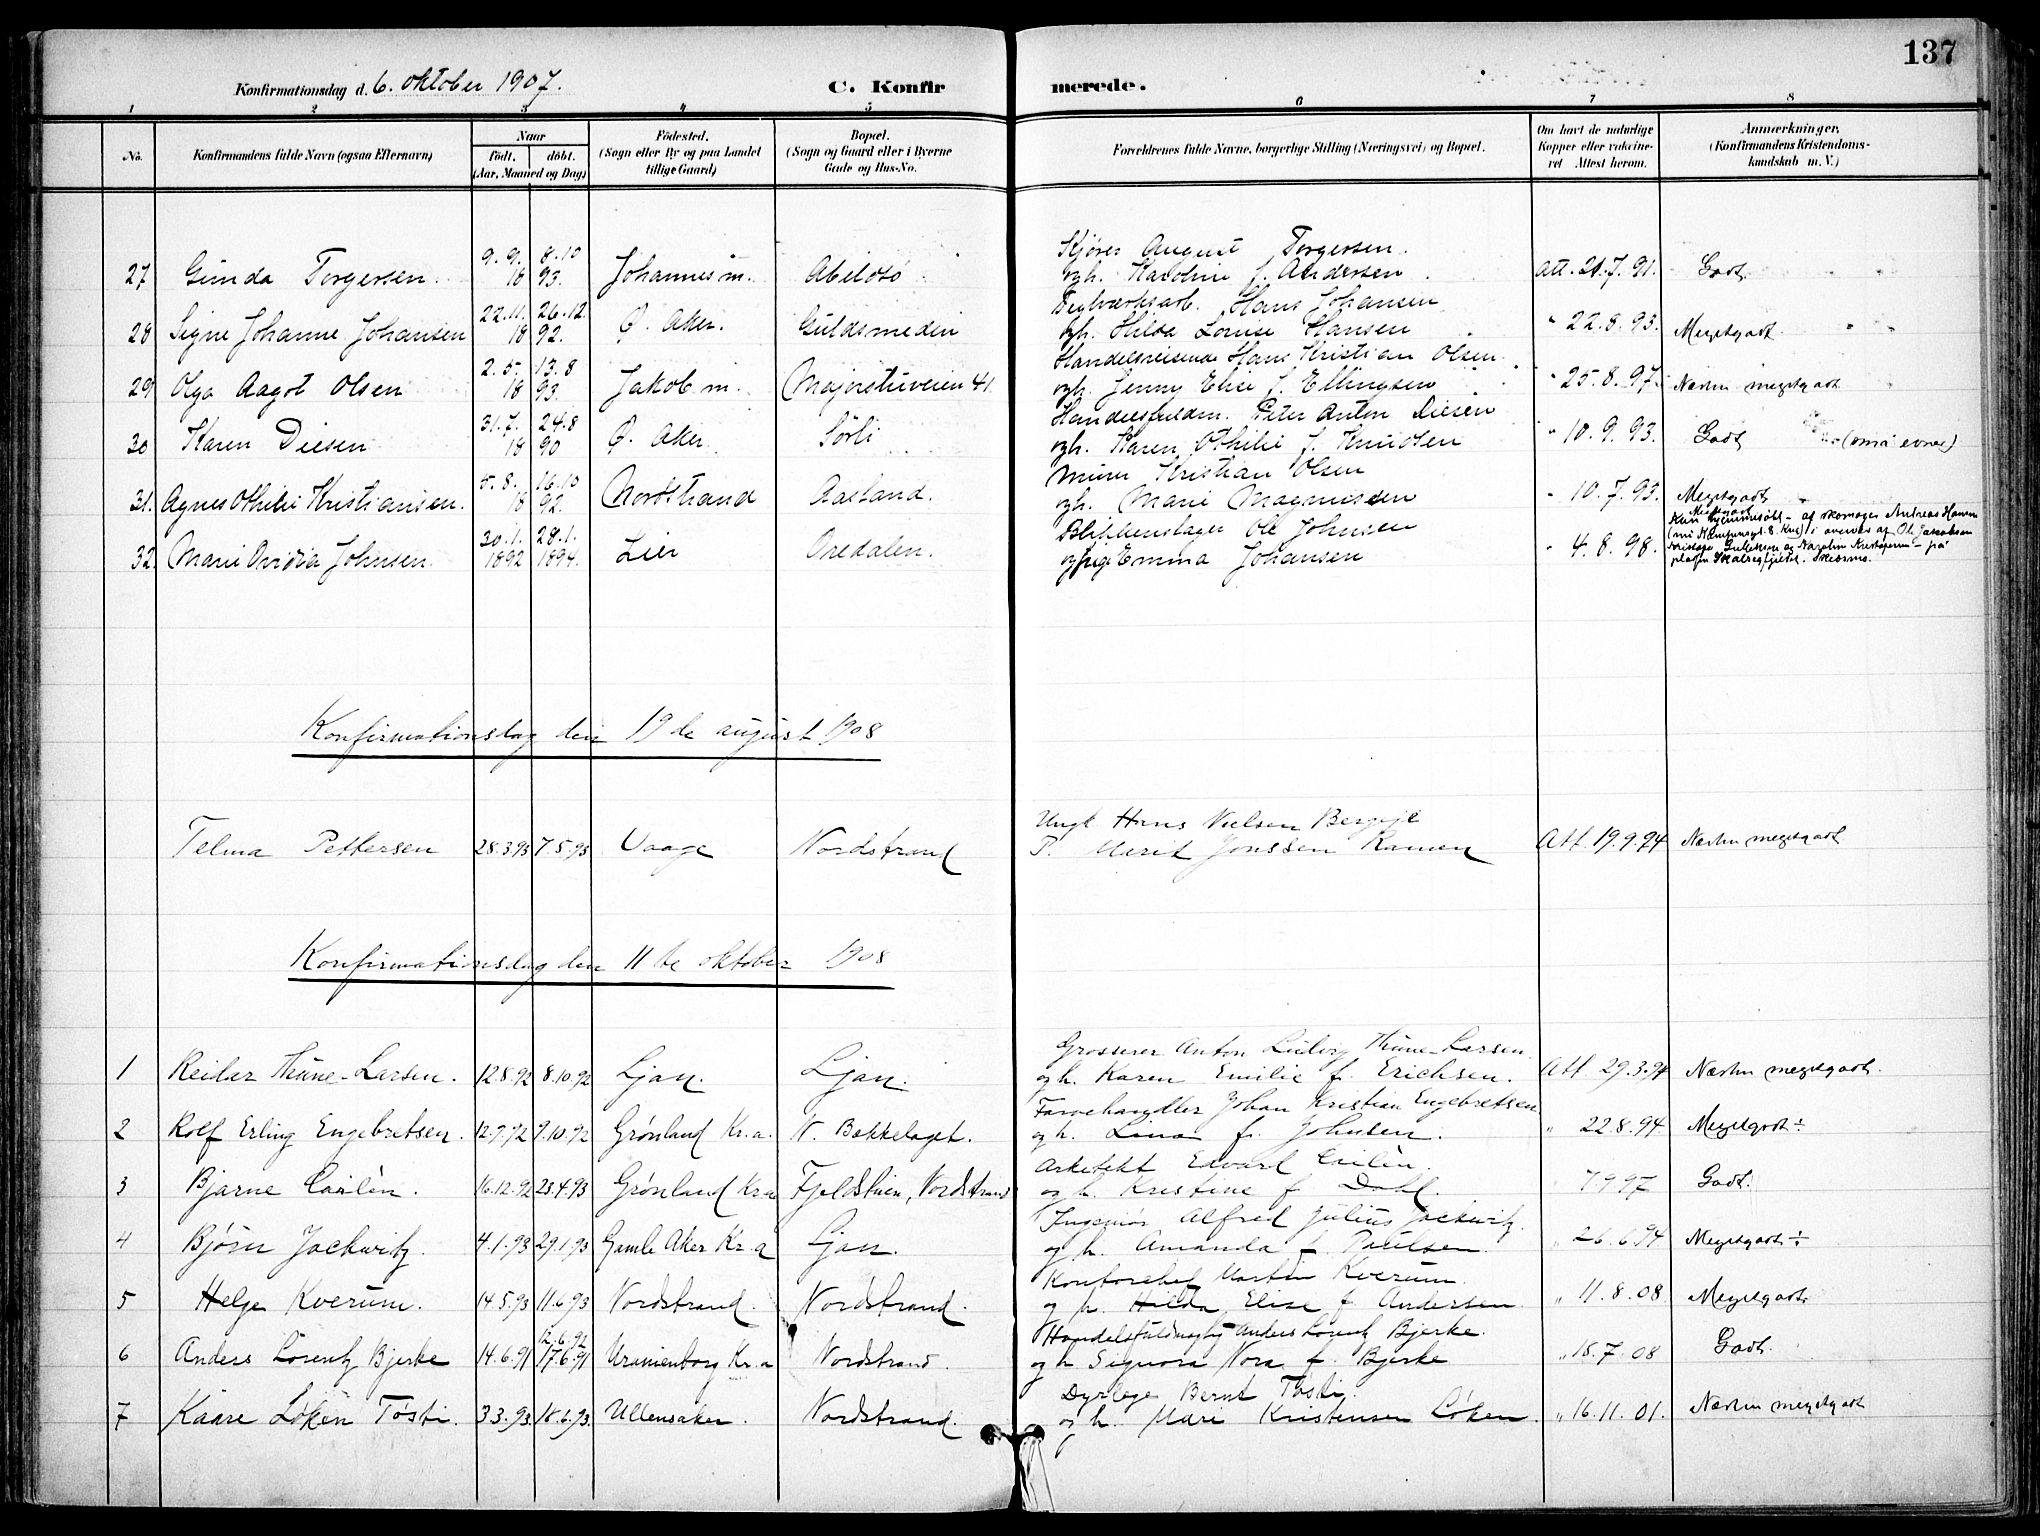 137
Konfirmationsdag d. 6. oktober 1907.
C. Konfirmerede.
1 2 3 4 5 6 7 8
No.
Konfirmandens fulde Navn (ogsaa Efternavn)
Naar
født. døbt.
(Aar, Maaned og Dag)
Fødested.
(Sogn eller By og paa Landet
tillige Gaard)
Bopæl.
(Sogn og Gaard eller i Byerne
Gade og Hus-No.
Forældrenes fulde Navne, borgerlige Stilling (Næringsvei) og Bopæl.
Om havt de naturlige
Kopper eller vaksine-
ret Attest herom.
Anmærkninger,
(Konfirmandens Kristendoms-
kundskab m. V.)
9. 9. 8. 10 Kjører August Torgersen.
27 Gunda Torgersen. 18 93. Johannes m. Abildsö ogh. Karoline f. Andersen att. 21.7.91. Godt
22.11. 26.12. Teglværksarb. Hans Johansen
28 Signe Johanne Johansen 18 92. Ö. Aker. Guldsmeden ogh. Hilda Lovise Hansen " 22.8.93. Megetgodt
2. 5. 13. 8 Handelsreisende Hans Kristian Olsen
29 Olga Aagot Olsen 18 93. Jakob m. Majorstuveien 41. ogh. Jenny Elise f. Ellingsen " 25.8.97. Næsten megetgodt
31. 7. 24. 8 Handelsfuldm. Peter Anton Diesen
30 Karen Diesen 18 90 Ö. Aker Sörli ogh. Karen Othilie f. Knudsen " 10.9.93. Godt (små evner)
5. 8. 16. 10 Murer Kristian Olsen
31. Agnes Othilie Kristiansen. 18 92. Nordstrand Aasland. ogh. Marie Magnussen " 10.7.93. Megetgodt
30.1. 28.1. Blikkenslager Ole Johnsen
32. Marie Ovidia Johnsen. 1892 1894. Lier Oredalen. og Emma Johansen " 4.8.98. Megetgodt
Kun hjemmedöbt - af skomager Andreas Hansen
Konfirmationsdag den 19de august 1908
Ungk Hans Nielsen
Telma Pettersen 28.3.93 7.5.93 Vaage Nordstrand P. Marit Jonssen Ramen Att 19.9.94 Næsten megetgodt
Konfirmationsdag den 11te oktober 1908
Grosserer Anton Ludvig Thune-Larsen
1 Reidar Thune-Larsen. 12.8.92 8.10.92 Ljan. Ljan. og h. Karen Emilie f. Erichsen. Att 29.3.94 Næsten megetgodt.
Farvehandler Johan Kristian Engebretsen
2 Rolf Erling Engebretsen. 12.9.92 9.10.92 Grønland Kr.a. N. Bækkelaget. og h. Lina f. Johnsen. " 22.8.94 Megetgodt ÷
Arkitekt Edvard Cailên.
3 Bjarne Cailên. 16.12.92 23.4.93 Grønland Kr.a Fjeldstuen, Nordstrand og h. Kristine f Dahl. 7 9 97 Godt.
Ingeniør Alfred Julius Jackwitz
4 Bjørn Jackwitz. 4.1.93 29.1.93 Gamle Aker Kr.a Ljan. og h. Amanda f. Paulsen. " 26.6.94 Megetgodt ÷
Kontorchef Martin Kverum.
5 Helge Kverum. 14.5.93 11.6.93 Nordstrand. Nordstrand. og h. Hilda Elise f. Andersen. " 11.8.08 Megetgodt
12.6.92 Handelsfuldmægtig Anders Lorentz Bjerke.
6 Anders Lorentz Bjerke 14.6.91 17.6.91 Uranienborg Kr.a Nordstrand. og h Signora Nora f. Bjerke " 18.7.08 Godt.
Dyrlæge Bernt Tøsti.
7 Kaare Løken Tøsti. 3.3.93. 18.6.93. Ullensaker. Nordstrand. og h. Mare Kristensen Løken. " 16.11.01. Næsten megetgodt